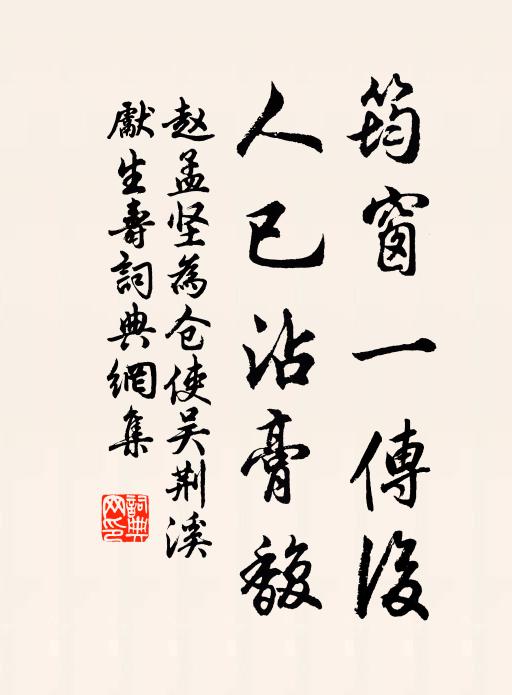 筠窗一傳後
人已沾膏馥
赵孟坚為仓使吴荆溪
獻生壽詞典網集
詞典網印